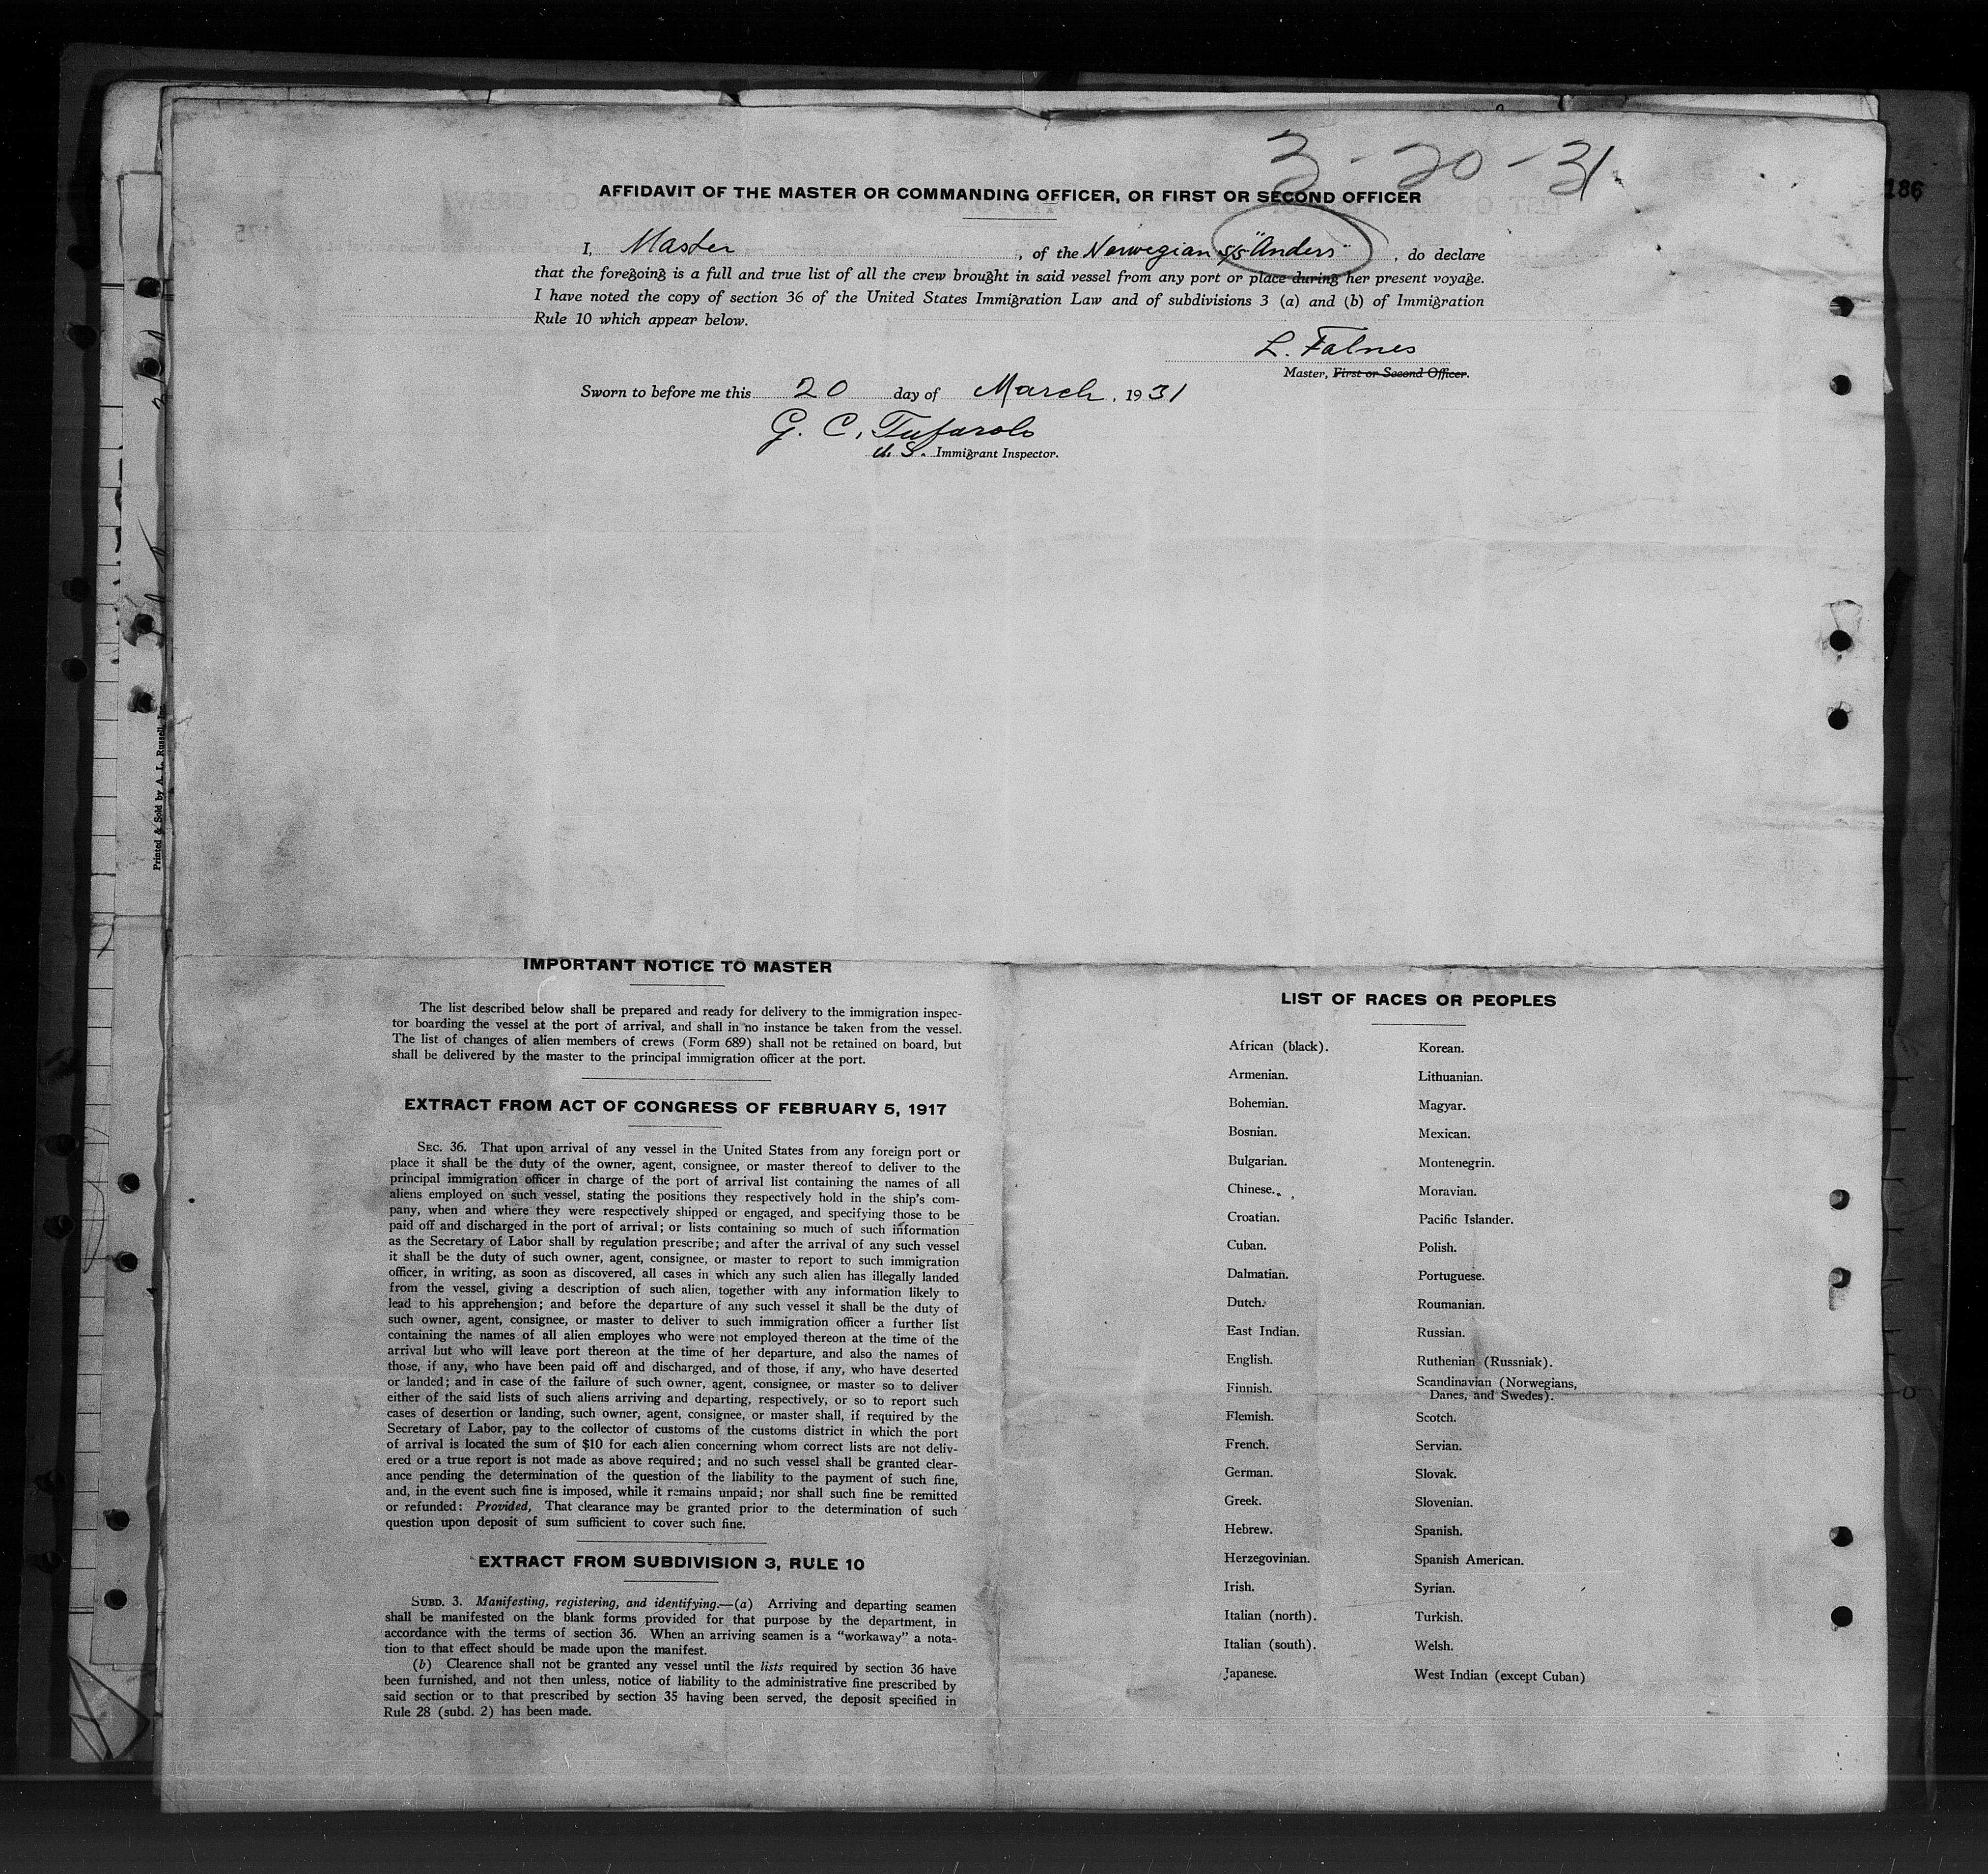 3-20-31
186
AFFIDAVIT OF THE MASTER OR COMMANDING OFFICER, OR FIRST OR SECOND OFFICER
I, Master, of the Norwegian S/S "Anders", do declare
that the foregoing is a full and true list of all the crew brought in said vessel from any port or place during her present voyage.
I have noted the copy of section 36 of the United States Immigration Law and of subdivisions 3 (a) and (b) of Immigration
Rule 10 which appear below.
L. Falnes
Master, First or Second Officer.
Sworn to before me this 20 day of March, 1931
G. C. Tufarolo
U. S. Immigrant Inspector.
Printed & Sold by A. L. Russell, Inc.
IMPORTANT NOTICE TO MASTER
The list described below shall be prepared and ready for delivery to the immigration inspec-
tor boarding the vessel at the port of arrival, and shall in no instance be taken from the vessel.
The list of changes of alien members of crews (Form 689) shall not be retained on board, but
shall be delivered by the master to the principal immigration officer at the port.
EXTRACT FROM ACT OF CONGRESS OF FEBRUARY 5, 1917
SEC. 36. That upon arrival of any vessel in the United States from any foreign port or
place it shall be the duty of the owner, agent, consignee, or master thereof to deliver to the
principal immigration officer in charge of the port of arrival list containing the names of all
aliens employed on such vessel, stating the positions they respectively hold in the ship's com-
pany, when and where they were respectively shipped or engaged, and specifying those to be
paid off and discharged in the port of arrival; or lists containing so much of such information
as the Secretary of Labor shall by regulation prescribe; and after the arrival of any such vessel
it shall be the duty of such owner, agent, consignee, or master to report to such immigration
officer, in writing, as soon as discovered, all cases in which any such alien has illegally landed
from the vessel, giving a description of such alien, together with any information likely to
lead to his apprehension; and before the departure of any such vessel it shall be the duty of
such owner, agent, consignee, or master to deliver to such immigration officer a further list
containing the names of all alien employes who were not employed thereon at the time of the
arrival but who will leave port thereon at the time of her departure, and also the names of
those, if any, who have been paid off and discharged, and of those, if any, who have deserted
or landed; and in case of the failure of such owner, agent, consignee, or master so to deliver
either of the said lists of such aliens arriving and departing, respectively, or so to report such
cases of desertion or landing, such owner, agent, consignee, or master shall, if required by the
Secretary of Labor, pay to the collector of customs of the customs district in which the port
of arrival is located the sum of $10 for each alien concerning whom correct lists are not deliv-
ered or a true report is not made as above required; and no such vessel shall be granted clear-
ance pending the determination of the question of the liability to the payment of such fine,
and, in the event such fine is imposed, while it remains unpaid; nor shall such fine be remitted
or refunded: Provided, That clearance may be granted prior to the determination of such
question upon deposit of sum sufficient to cover such fine.
EXTRACT FROM SUBDIVISION 3, RULE 10
SUBD. 3. Manifesting, registering, and identifying.—(a) Arriving and departing seamen
shall be manifested on the blank forms provided for that purpose by the department, in
accordance with the terms of section 36. When an arriving seamen is a "workaway" a nota-
tion to that effect should be made upon the manifest.
(b) Clearence shall not be granted any vessel until the lists required by section 36 have
been furnished, and not then unless, notice of liability to the administrative fine prescribed by
said section or to that prescribed by section 35 having been served, the deposit specified in
Rule 28 (subd. 2) has been made.
LIST OF RACES OR PEOPLES
African (black).
Armenian.
Bohemian.
Bosnian.
Bulgarian.
Chinese.
Croatian.
Cuban.
Dalmatian.
Dutch.
East Indian.
English.
Finnish.
Flemish.
French.
German.
Greek.
Hebrew.
Herzegovinian.
Irish.
Italian (north).
Italian (south).
Japanese.
Korean.
Lithuanian.
Magyar.
Mexican.
Montenegrin.
Moravian.
Pacific Islander.
Polish.
Portuguese.
Roumanian.
Russian.
Ruthenian (Russniak).
Scandinavian (Norwegians,
Danes, and Swedes).
Scotch.
Servian.
Slovak.
Slovenian.
Spanish.
Spanish American.
Syrian.
Turkish.
Welsh.
West Indian (except Cuban)